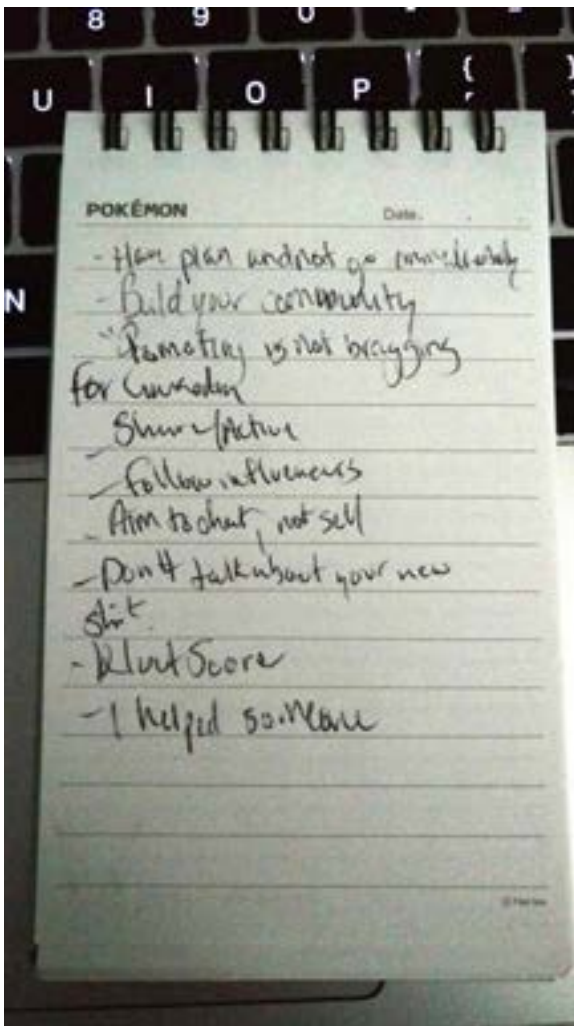 8 9 0 - =
U I O P {
[ }
N
POKÉMON Date. . .
- Have plan and not go immediately
- Build your community
"Promoting is not bragging
for
- Share/
- Follow influencers
- Aim to chat, not sell
- Don't talk about your new
shit.
- Klout Score
- I helped someone